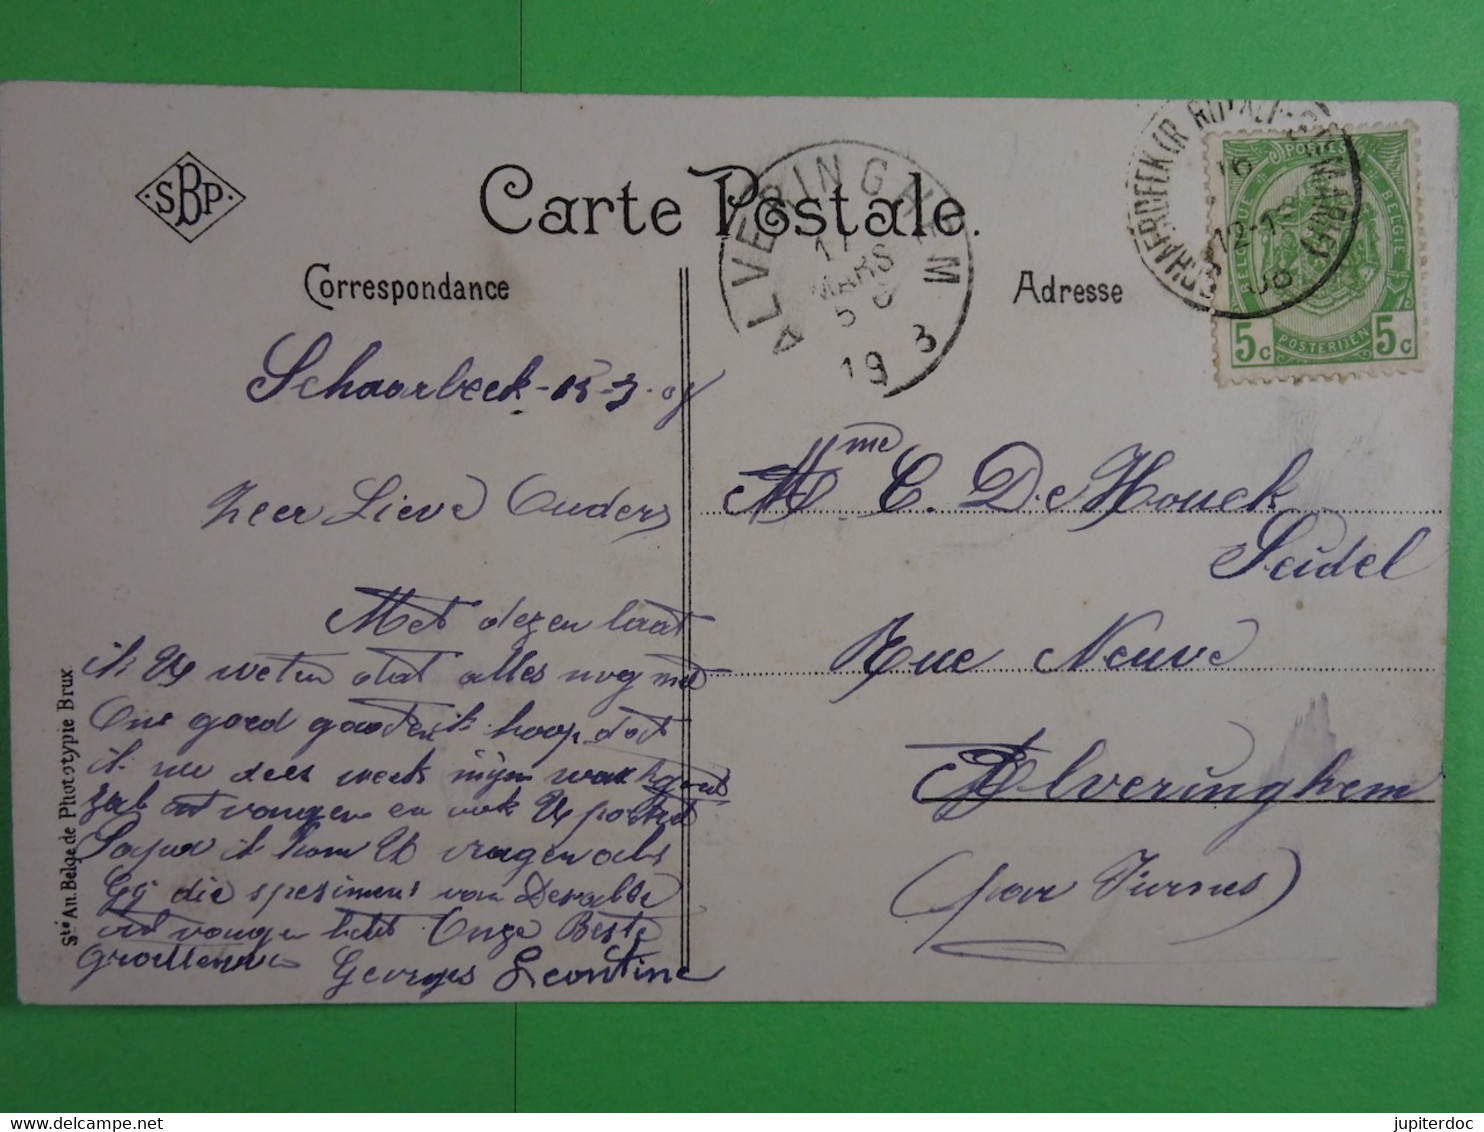 SBP
Carte Postale.
Correspondance
Adresse
ALVERINGHEM
17
MARS
19 3
SCHAERBEEK (R ROYALE-STE MARIE)
16
12-1
08
POSTES
BELGIQUE BELGIE
POSTERIJEN
5c 5c
Schaarbeek - 15-3-08
Zeer Lieve Ouders
Met dezen laat
ik U weten dat alles nog met
Ons goed gaat en ik hoop dat
ik nu dees week mijn
zal ontvangen en ook U
Papa ik kom U vragen als
Gij die spesimens van
ontvangen hebt Onze Beste
Groetenis
Georges Leontine
Mme C. De Houck
Seidel
Rue Neuve
Alveringhem
(par Furnes)
Sté An. Belge de Phototypie Brux
jupiterdoc